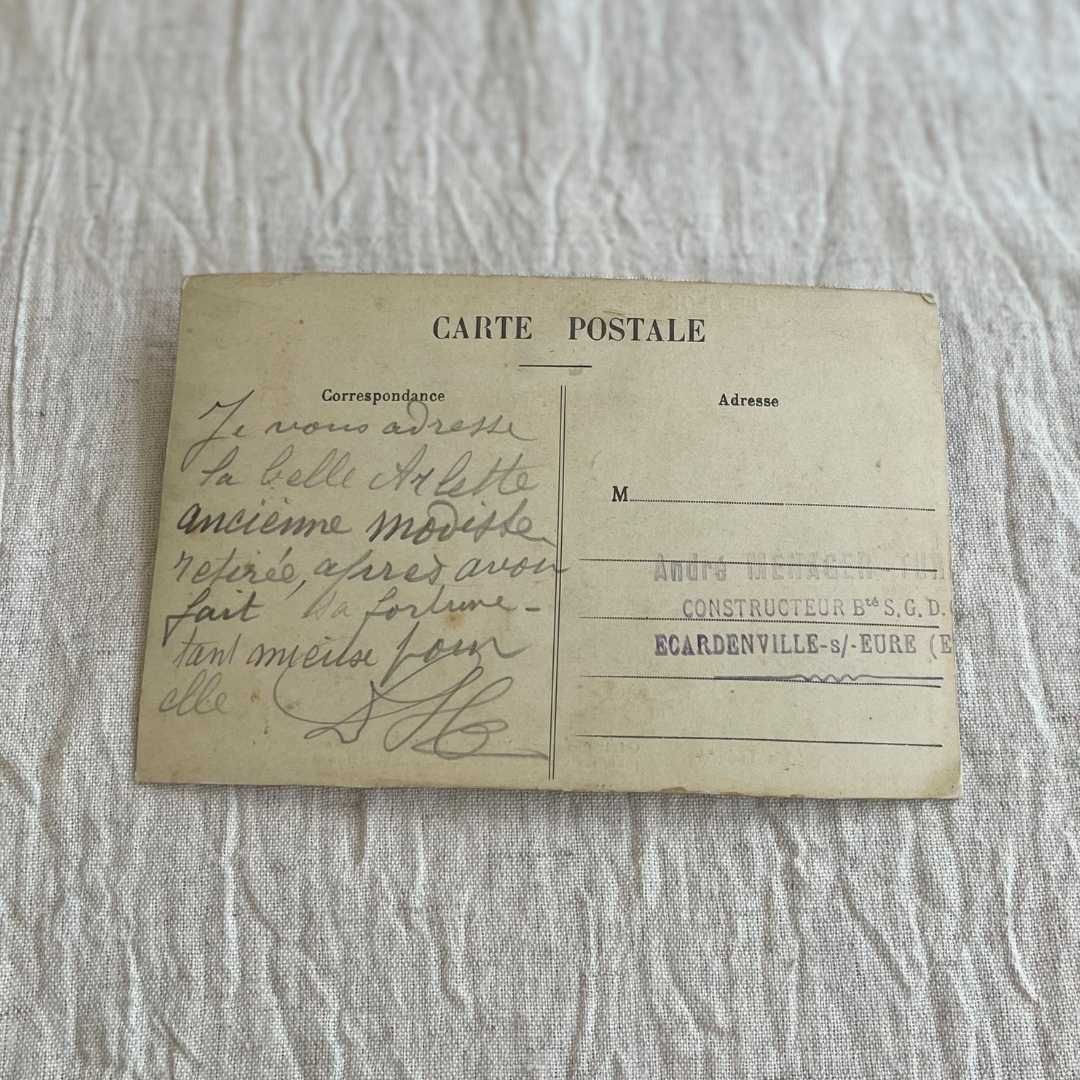 CARTE POSTALE
Correspondance
Je vous adresse
la belle Arlette
ancienne modiste
retirée, après avoir
fait sa fortune -
tant mieux pour
elle
Adresse
M
André MENAGER
CONSTRUCTEUR Bté S.G.D.
ECARDENVILLE-s/-EURE (E